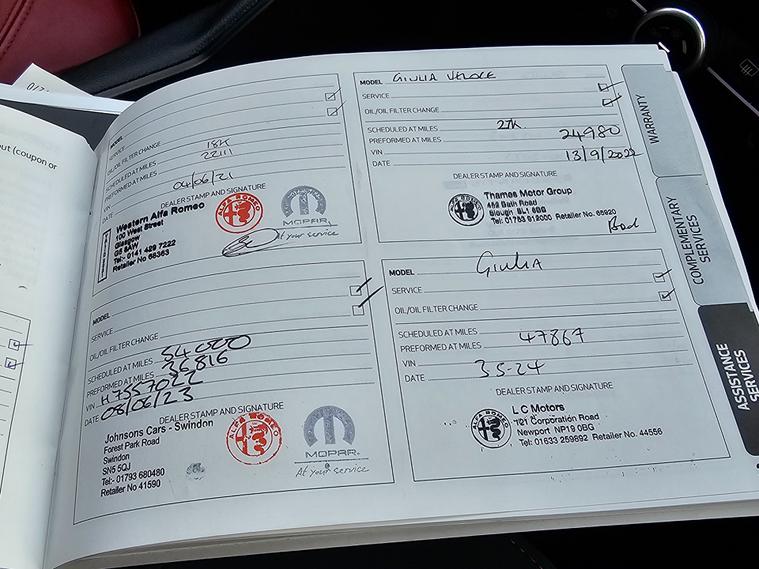 ut (coupon or
MODEL
SERVICE
OIL/OIL FILTER CHANGE 18K
SCHEDULED AT MILES 22111
PREFORMED AT MILES
VIN 04/06/21
DATE
DEALER STAMP AND SIGNATURE
Western Alfa Romeo
100 West Street
Glasgow
G5 8AW
Tel:- 0141 429 7222
Retailer No 68363
ALFA ROMEO
MOPAR
At your service
MODEL GIULIA VELOCE
SERVICE
OIL/OIL FILTER CHANGE
SCHEDULED AT MILES 27K
PREFORMED AT MILES 24980
VIN
DATE 13/9/2022
DEALER STAMP AND SIGNATURE
Thames Motor Group
Slough SL1 6BG
Tel: 01753 912000 Retailer No. 66920
MODEL
SERVICE
OIL/OIL FILTER CHANGE
SCHEDULED AT MILES 54000
PREFORMED AT MILES 36816
VIN H7557022
DATE 08/06/23
DEALER STAMP AND SIGNATURE
Johnsons Cars - Swindon
Forest Park Road
Swindon
SN5 5QJ
Tel:- 01793 680480
Retailer No 41590
ALFA ROMEO
MOPAR
At your service
MODEL GIULIA
SERVICE
OIL/OIL FILTER CHANGE
SCHEDULED AT MILES
PREFORMED AT MILES 47867
VIN
DATE 3.5-24
DEALER STAMP AND SIGNATURE
L C Motors
121 Corporation Road
Newport NP19 0BG
Tel: 01633 259892 Retailer No. 44556
WARRANTY
COMPLEMENTARY
SERVICES
ASSISTANCE
SERVICES